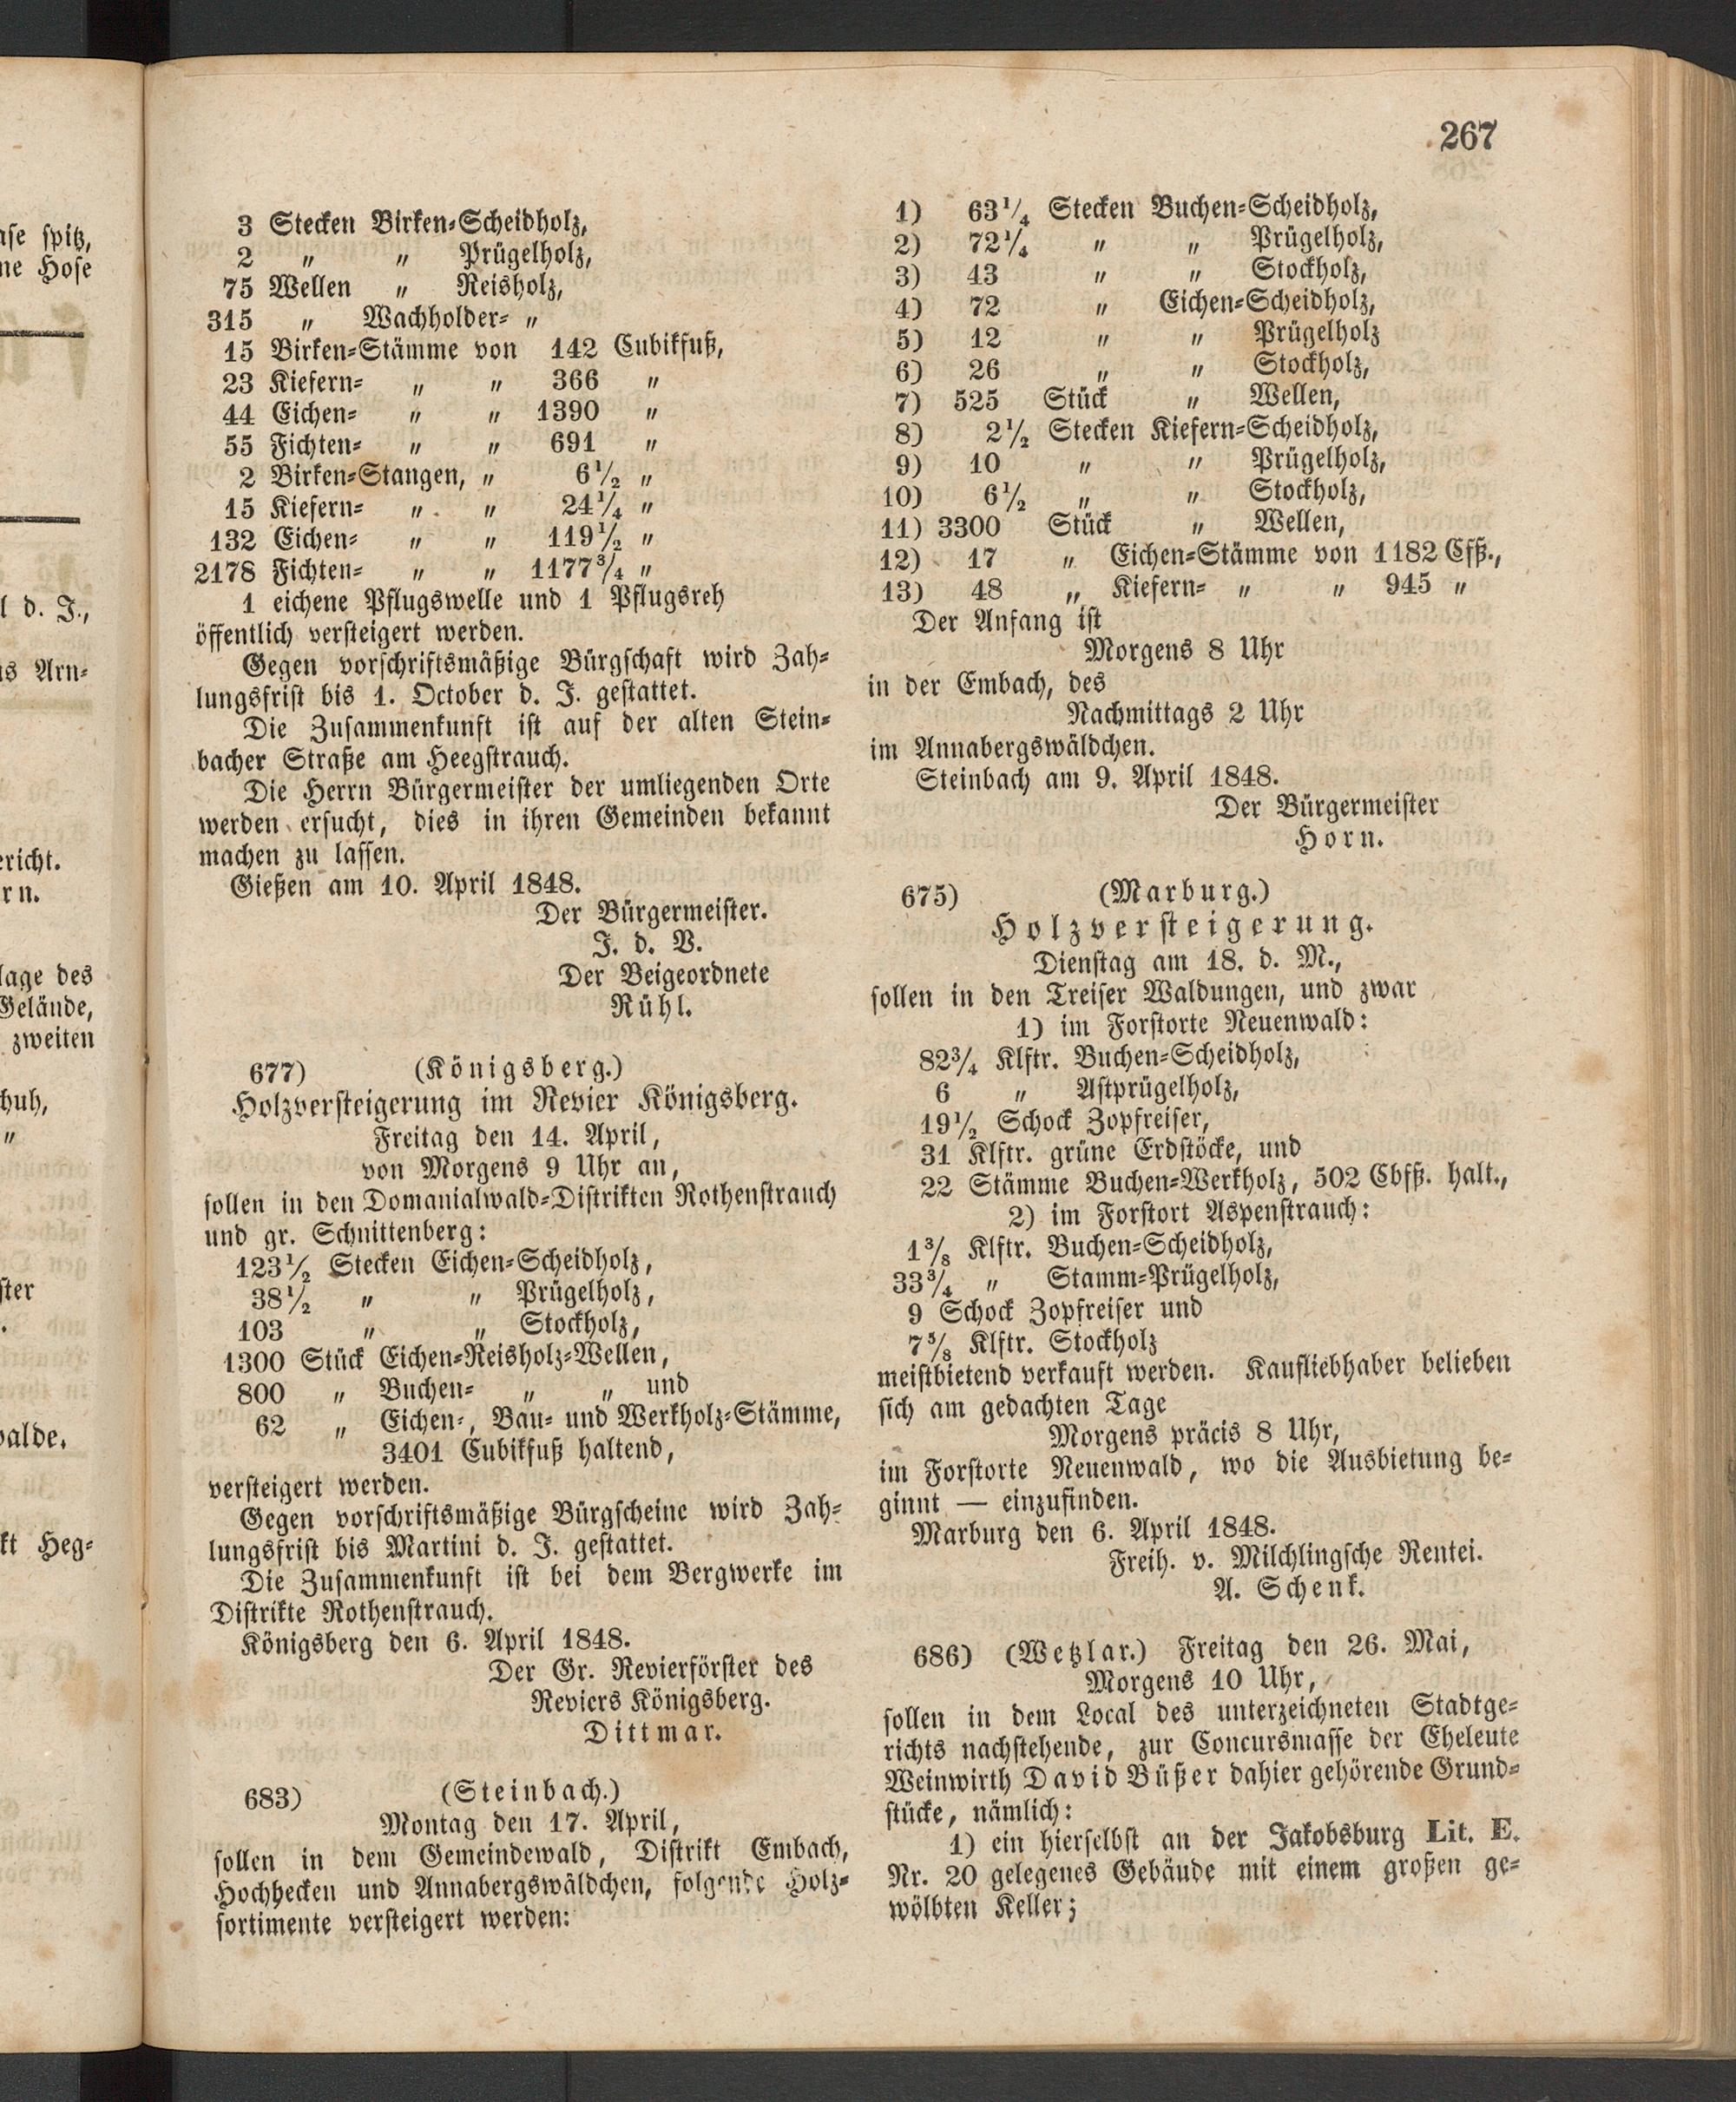 267
3 Stecken Birken-Scheidholz,
2 „ „ Prügelholz,
75 Wellen „ Reisholz,
315 „ Wachholder- „
15 Birken-Stämme von 142 Cubikfuß,
23 Kiefern- „ „ 366 „
44 Eichen- „ „ 1390 „
55 Fichten- „ „ 691 „
2 Birken-Stangen, „ 6½ „
15 Kiefern- „ „ 24¼ „
132 Eichen- „ „ 119½ „
2178 Fichten- „ „ 1177¾ „
1 eichene Pflugswelle und 1 Pflugsreh
öffentlich versteigert werden.
Gegen vorschriftsmäßige Bürgschaft wird Zah-
lungsfrist bis 1. October d. J. gestattet.
Die Zusammenkunft ist auf der alten Stein-
bacher Straße am Heegstrauch.
Die Herrn Bürgermeister der umliegenden Orte
werden ersucht, dies in ihren Gemeinden bekannt
machen zu lassen.
Gießen am 10. April 1848.
Der Bürgermeister.
J. d. V.
Der Beigeordnete
Rühl.
677) (Königsberg.)
Holzversteigerung im Revier Königsberg.
Freitag den 14. April,
von Morgens 9 Uhr an,
sollen in den Domanialwald-Distrikten Rothenstrauch
und gr. Schnittenberg:
123½ Stecken Eichen-Scheidholz,
38½ „ „ Prügelholz,
103 „ „ Stockholz,
1300 Stück Eichen-Reisholz-Wellen,
800 „ Buchen- „ „ und
62 „ Eichen-, Bau- und Werkholz-Stämme,
3401 Cubikfuß haltend,
versteigert werden.
Gegen vorschriftsmäßige Bürgscheine wird Zah-
lungsfrist bis Martini d. J. gestattet.
Die Zusammenkunft ist bei dem Bergwerke im
Distrikte Rothenstrauch.
Königsberg den 6. April 1848.
Der Gr. Revierförster des
Reviers Königsberg.
Dittmar.
683) (Steinbach.)
Montag den 17. April,
sollen in dem Gemeindewald, Distrikt Embach,
Hochhecken und Annabergswäldchen, folgende Holz-
sortimente versteigert werden:
1) 63¼ Stecken Buchen-Scheidholz,
2) 72¼ „ „ Prügelholz,
3) 43 „ „ Stockholz,
4) 72 „ Eichen-Scheidholz,
5) 12 „ „ Prügelholz
6) 26 „ „ Stockholz,
7) 525 Stück „ Wellen,
8) 2½ Stecken Kiefern-Scheidholz,
9) 10 „ „ Prügelholz,
10) 6½ „ „ Stockholz,
11) 3300 Stück „ Wellen,
12) 17 „ Eichen-Stämme von 1182 Cfß.,
13) 48 „ Kiefern- „ „ 945 „
Der Anfang ist
Morgens 8 Uhr
in der Embach, des
Nachmittags 2 Uhr
im Annabergswäldchen.
Steinbach am 9. April 1848.
Der Bürgermeister
Horn.
675) (Marburg.)
Holzversteigerung.
Dienstag am 18. d. M.,
sollen in den Treiser Waldungen, und zwar
1) im Forstorte Neuenwald:
82¾ Klftr. Buchen-Scheidholz,
6 „ Astprügelholz,
19½ Schock Zopfreiser,
31 Klftr. grüne Erdstöcke, und
22 Stämme Buchen-Werkholz, 502 Cbfß. halt.,
2) im Forstort Aspenstrauch:
1⅜ Klftr. Buchen-Scheidholz,
33¾ „ Stamm-Prügelholz,
9 Schock Zopfreiser und
7⅝ Klftr. Stockholz
meistbietend verkauft werden. Kaufliebhaber belieben
sich am gedachten Tage
Morgens präcis 8 Uhr,
im Forstorte Neuenwald, wo die Ausbietung be-
ginnt — einzufinden.
Marburg den 6. April 1848.
Freih. v. Milchlingsche Rentei.
A. Schenk.
686) (Wetzlar.) Freitag den 26. Mai,
Morgens 10 Uhr,
sollen in dem Local des unterzeichneten Stadtge-
richts nachstehende, zur Concursmasse der Eheleute
Weinwirth David Büßer dahier gehörende Grund-
stücke, nämlich:
1) ein hierselbst an der Jakobsburg Lit. E.
Nr. 20 gelegenes Gebäude mit einem großen ge-
wölbten Keller;